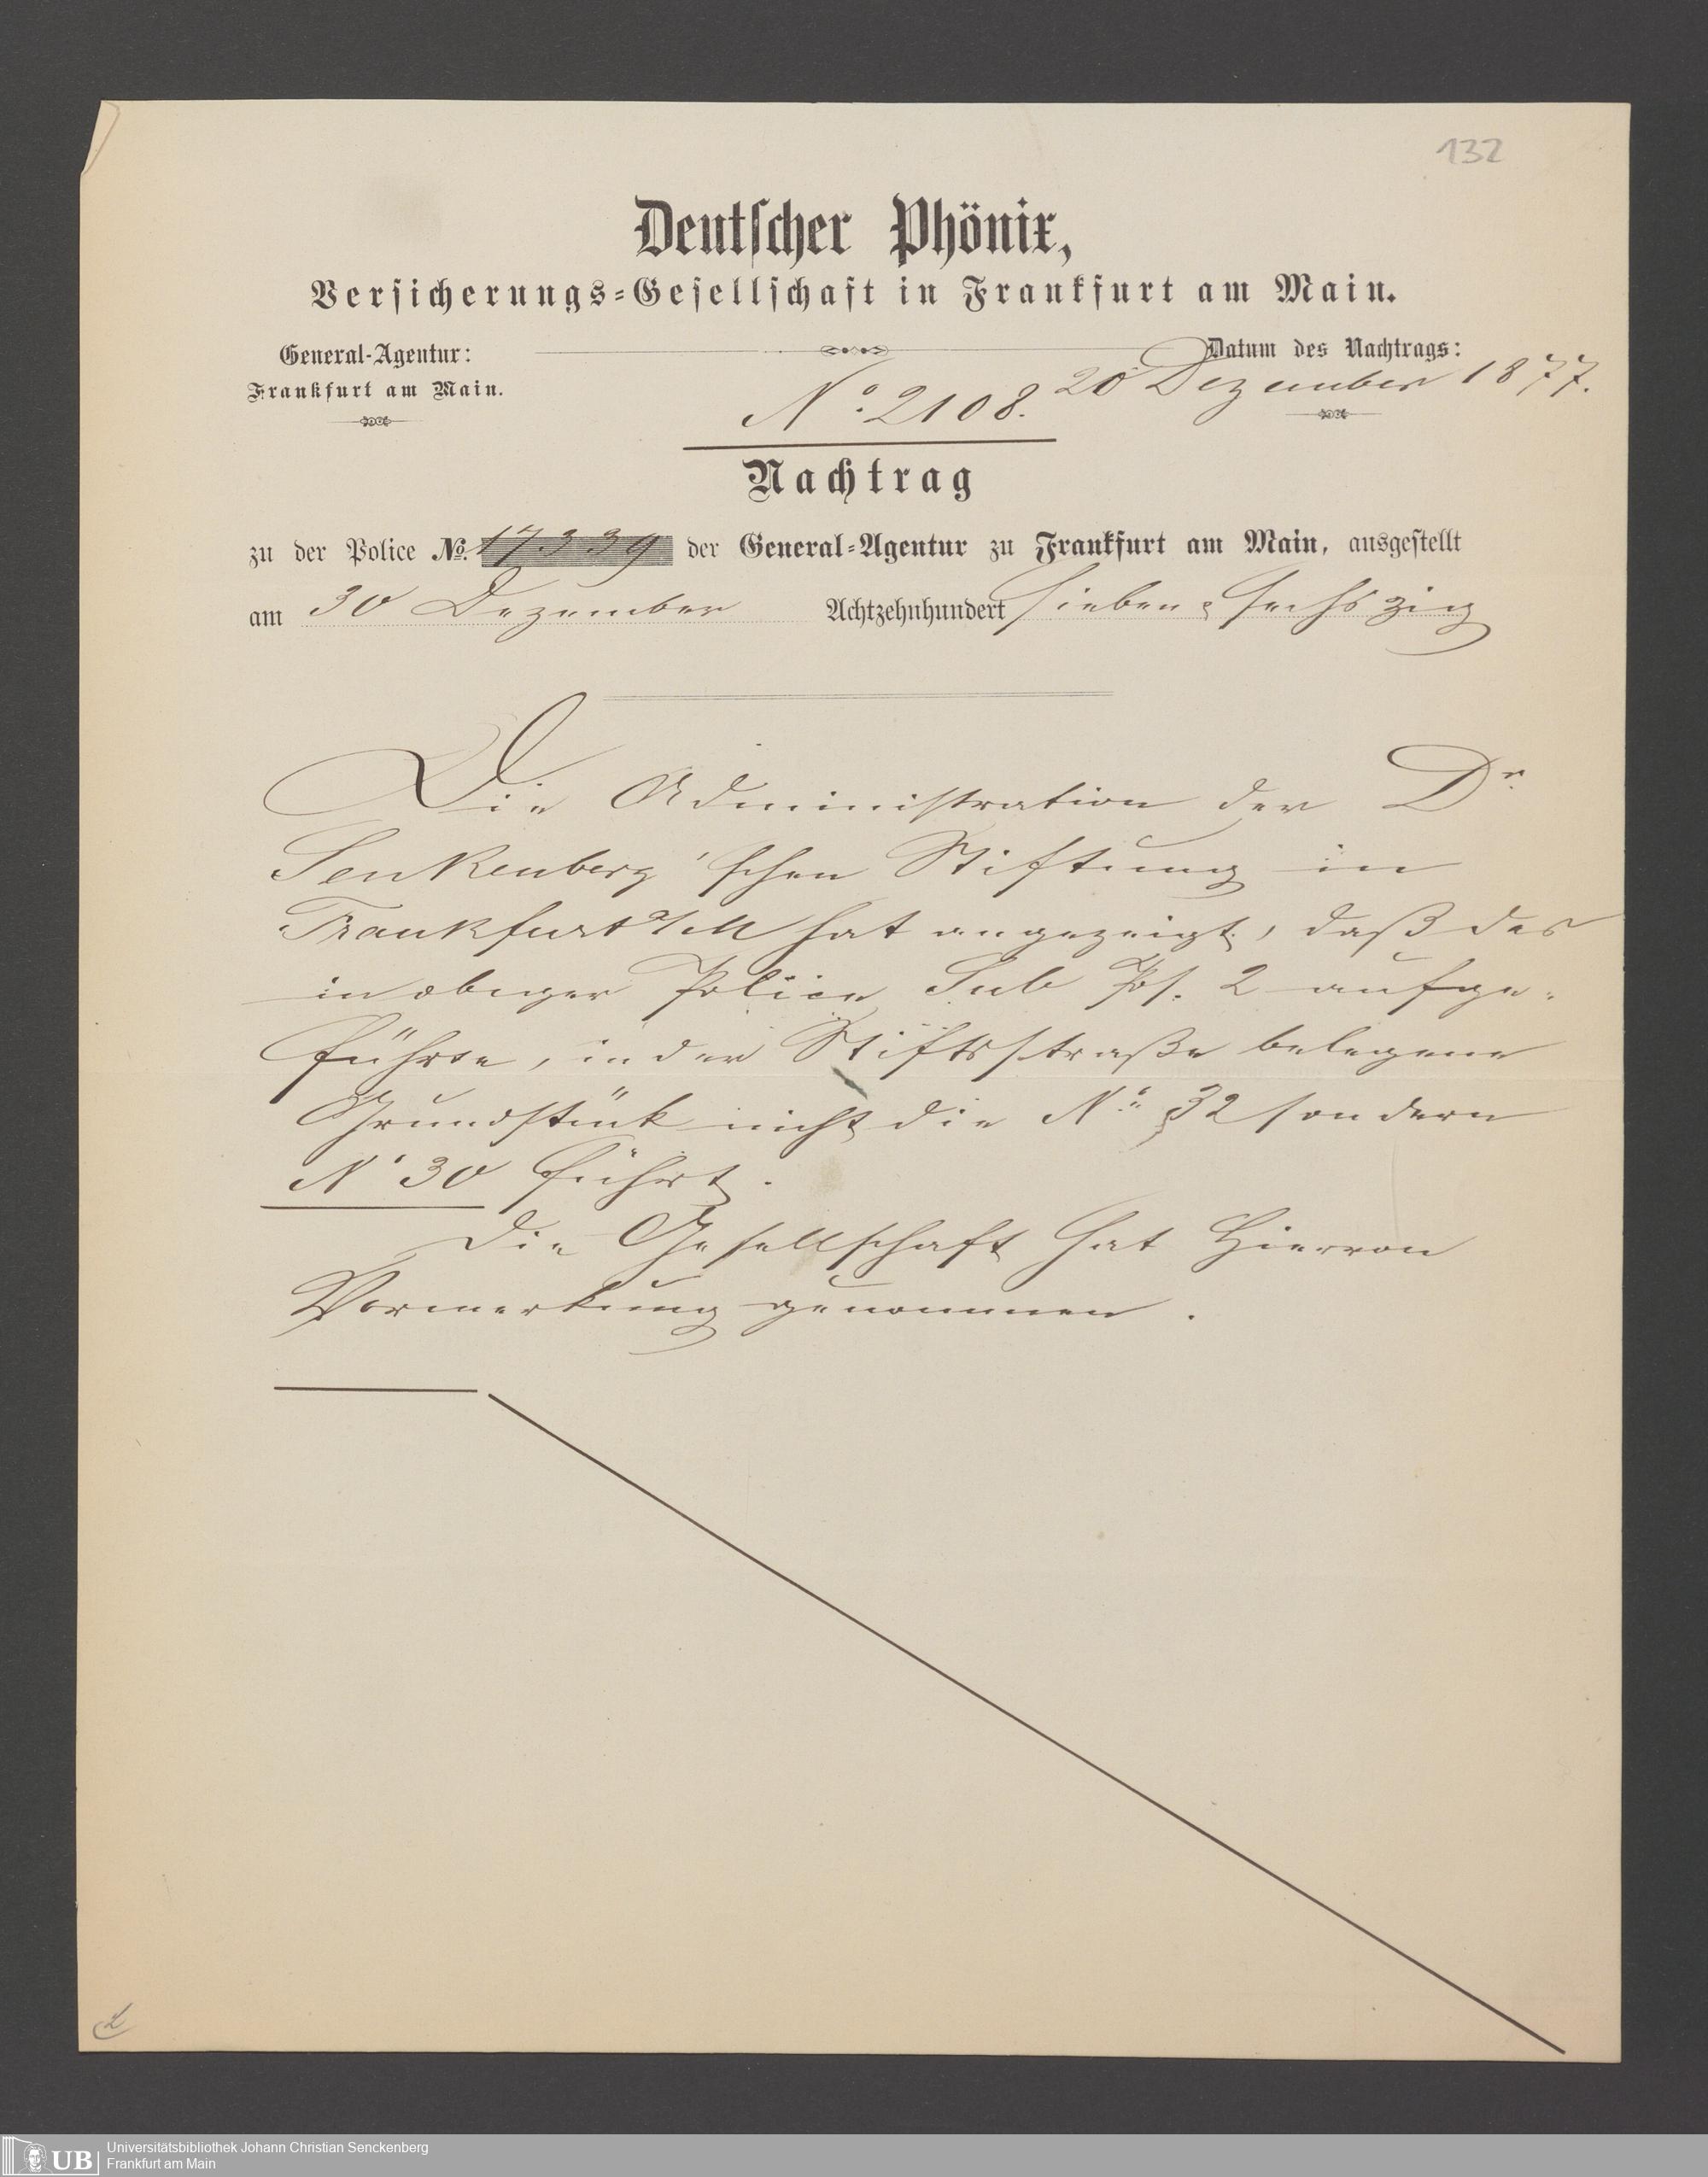 132
Deutscher Phönix,
Versicherungs-Gesellschaft in Frankfurt am Main.
General-Agentur:
Frankfurt am Main.
Datum des Nachtrags:
20 Dezember 1877.
No. 2108.
Nachtrag
zu der Police No. 17339 der General-Agentur zu Frankfurt am Main, ausgestellt
am 30 Dezember Achtzehnhundert sieben & sechszig
Die Administration der Dr.
Senkenberg'schen Stiftung in
Frankfurt a/M hat angezeigt, daß das
in obiger Police Sub Pos. 2 aufge-
führte, in der Stiftsstraße belegene
Grundstük nicht die No. 32 sondern
No 30 führt.
Die Gesellschaft hat Hiervon
Vormerkung genommen.
UB
Universitätsbibliothek Johann Christian Senckenberg
Frankfurt am Main